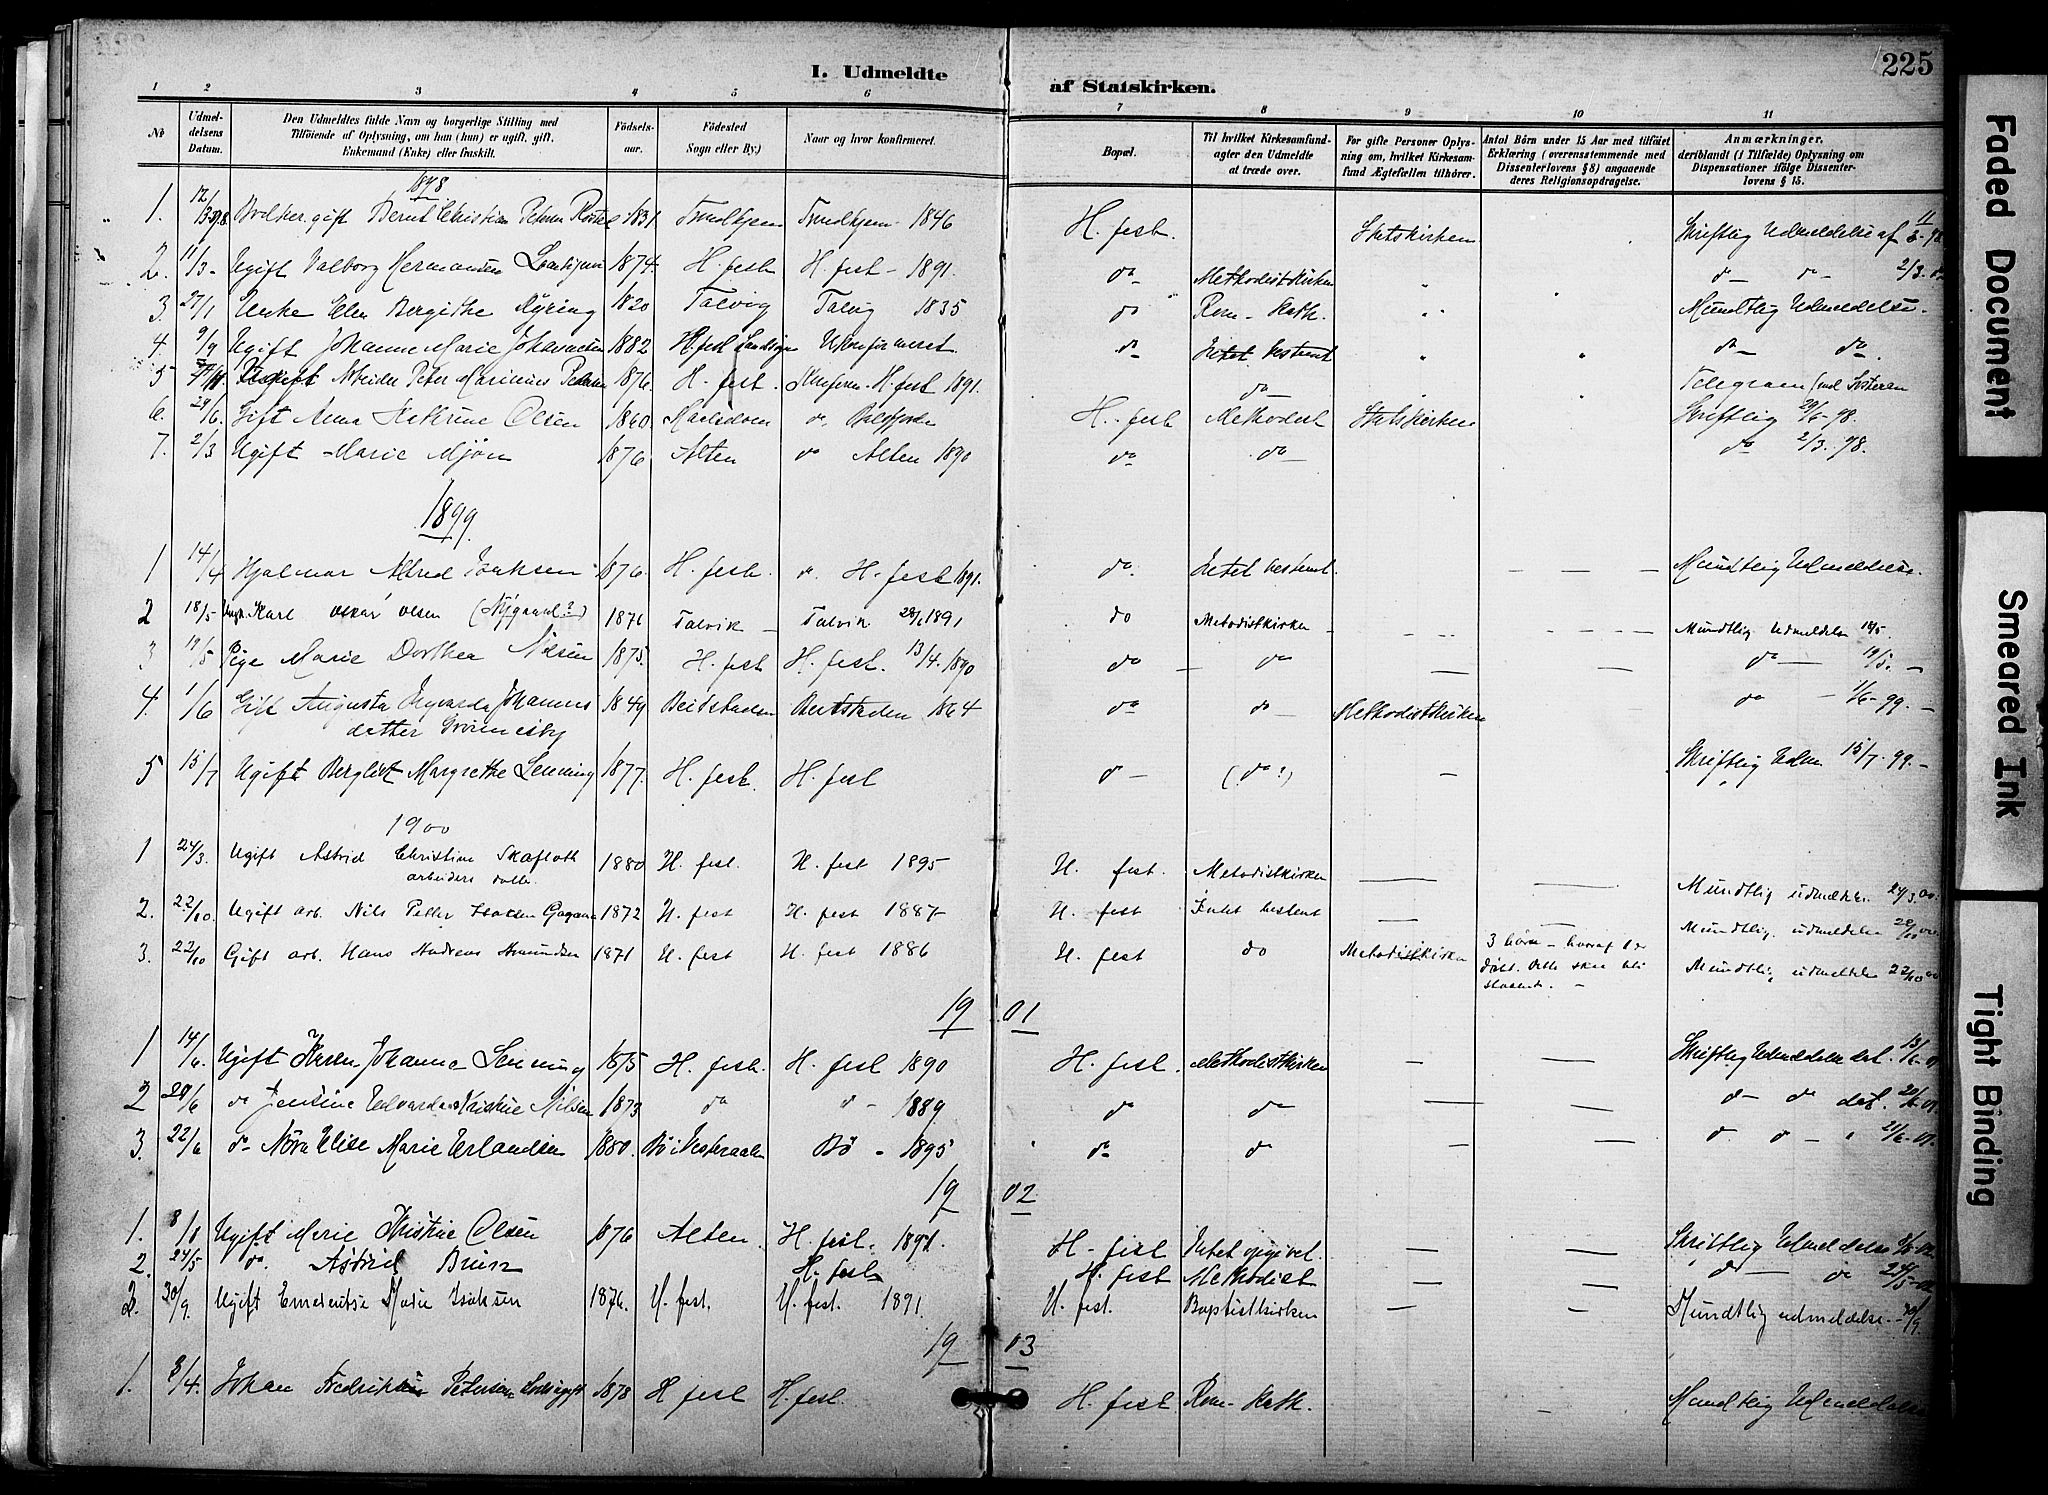 225
I. Udmeldte af Statskirken.
1 2 3 4 5 6 7 8 9 10 11
No
Udmeldelsens Datum.
Den Udmeldtes fulde Navn og borgerlige Stilling med Tilføiende af Oplysning, om han (hun) er ugift, gift, Enkemand (Enke) eller fraskilt.
Fødselsaar.
Fødested Sogn eller By.)
Naar og hvor konfirmeret.
Bopæl.
Til hvilket Kirkesamfund agter den Udmeldte at træde over.
For gifte Personer Oplysning om, hvilket Kirkesamfund Ægtefællen tilhører.
Antal Börn under 15 Aar med tilføiet Erklæring (overensstemmende med Dissenterlovens § 8) angaaende deres Religionsopdragelse.
Anmærkninger, deriblandt (i Tilfælde) Oplysning om Dispensationer ifölge Dissenterlovens § 15.
1898
1. gift Bernt Christian 1831 1846 H. fest. Statskirken Skriftlig Udmeldelse af
2. 11/3 - Ugift Valborg Hermansen 1874. H. fest H. fest - 1891. do Methodistkirken do - do - 2/3.
3. 27/1 Enke Elen Bergithe Kyring 1820 Talvig Talvig 1835 do Rom. Kath. Mundtlig Udmeldelse.
4. 9/9 Ugift Johanne Marie 1882 H. fest Landsogn Ukonfirmeret do Intet bestemt do do
5 Ugift Arbeider Peter Marinius 1876. H. fest. Konfirm. H. fest 1891. do Telegram
6. 29/6. Gift Anna Kathrine Olsen 1860 do H. fest Methodist Statskirken Skriftlig 29/6-98.
7. 2/3 Ugift Marie Mjøen 1876 Alten do Alten 1890 do do do 2/3. 98.
1899.
1 14/4 Hjalmar Alfred Isaksen 1876. H. fest. do H. fest 1891. do. Intet bestemt. — — — Mundtlig Udmeldelse.
2 18/5 Ungk. Karl Oskar Olsen (Nygaard?) 1876 Talvik — Talvik 1891 do Metodistkirken Mundtlig Udmeldelse 18/5.
3 19/5 Pige Marie Dorthea Nilsen 1875. H. fest H. fest. 13/4. 1890 do — do — — do — 19/5. —
4. 1/6 Gift Augusta Johannesdatter 1849 Beidstaden Beitstaden 1864 do do — Methodistkirken do — 1/6-99. —
5 15/7 Ugift Bergliot Margrethe Lenning 1877. H. fest. H. fest do — (do?) — Skriftlig Udm 15/7. 99. —
1900
1 24/3. Ugift Astrid Christine Skafloth arbeiders datter. 1880 H. fest. H. fest 1895 H. fest. Metodistkirken — — Mundtlig udmeldelse 24/3.00.
2. 22/10. Ugift arb. Nils Petter Isaksen 1872 H. fest H. fest 1887 H. fest Intet bestemt — Mundtlig udmeldelse
3. 22/10 Gift arb. Hans Andreas Amundsen 1871 H. fest H. fest 1886 H. fest do Metodistkirken 3 børn - hvoraf 1 er døbt. Dette skal bli Mundtlig udmeldelse 22/10 00
19 01
1 14/6. Ugift Karen Johanna Lenning 1875 H. fest. H. fest 1890 H. fest. Methodistkirken — — Skriftlig Udmeldelse dat. 13/6-01
2 20/6 do Jensine Edvarda Kristine Nilsen 1873 do do - 1889 do do — — do - do dat. 20/6-01.
3. 22/6 do Nora Elise Marie Erlandsen 1880. Bø i Vesteraalen Bø - 1895 do do — — do do - 21/6-01.
19 02
1. 8/8 Ugift Marie Kristine Olsen 1876 Alten. H. fest. 1891. H. fest Intet opgivet. — — Skriftlig Udmeldelse
2. 24/5 do. Astrid Bruun H. fest H. fest Methodist — — do — do 24/5-02
3. 20/9. Ugift Emerentse Marie Isaksen 1876. H. fest. H. fest. 1891. H. fest. Baptistkirken — — Mundtlig udmeldelse -
19 03
1. 8/4. Johan Fredriksen Petersen 1878 H fest H. fest. H. fest Rom. Kath. — Mundtlig Udmeldelse
Faded Document
Smeared Ink
Tight Binding